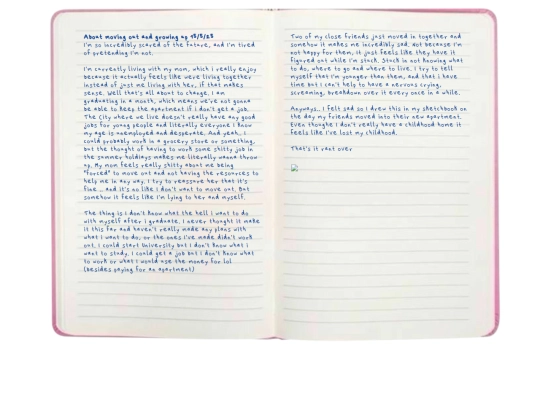 About moving out and growing up 18/5/23
I'm so incredibly scared of the future, and i'm tired
of pretending i'm not.
I'm currently living with my mom, which i really enjoy
because it actually feels like we're living together
instead of just me living with her, if that makes
sense. Well that's all about to change. I am
graduating in a month, which means we're not gonna
be able to keep the apartment if i don't get a job.
The city where we live doesn't really have any good
jobs for young people and literally everyone i know
my age is unemployed and desperate. And yeah, i
could probably work in a grocery store or something,
but the thought of having to work some shitty job in
the summer holidays makes me literally wanna throw
up. My mom feels really shitty about me being
"forced" to move out and not having the resources to
help me in any way. I try to reassure her that it's
fine.. and it's no like i don't want to move out. But
somehow it feels like i'm lying to her and myself.
The thing is i don't know what the hell i want to do
with myself after i graduate. I never thought i'd make
it this far and haven't really made any plans with
what i want to do, or the ones i've made didn't work
out. I could start University but i don't know what i
want to study. I could get a job but i don't know what
to work or what i would use the money for lol
(besides paying for an apartment)
Two of my close friends just moved in together and
somehow it makes me incredibly sad. Not because i'm
not happy for them, it just feels like they have it
figured out while i'm stuck. Stuck in not knowing what
to do, where to go and where to live. I try to tell
myself that i'm younger than them, and that i have
time but i can't help to have a nervous crying,
screaming, breakdown over it every once in a while.
Anyways.. I felt sad so i drew this in my sketchbook on
the day my friends moved into their new apartment.
Even thoughe i don't really have a childhood home it
feels like i've lost my childhood.
That's it rant over